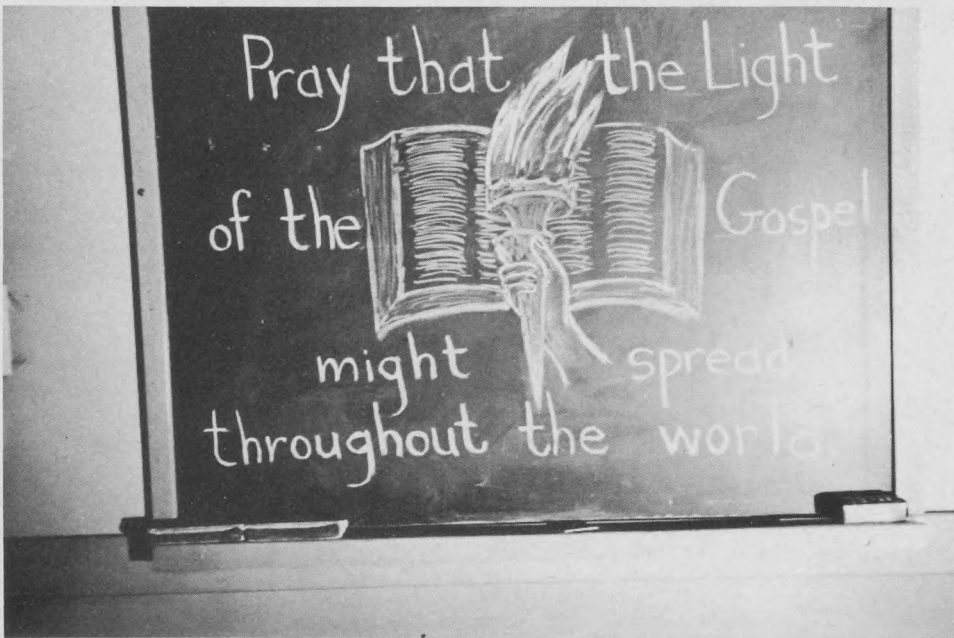 Pray that the Light
of the Gospel
might spread
throughout the world.